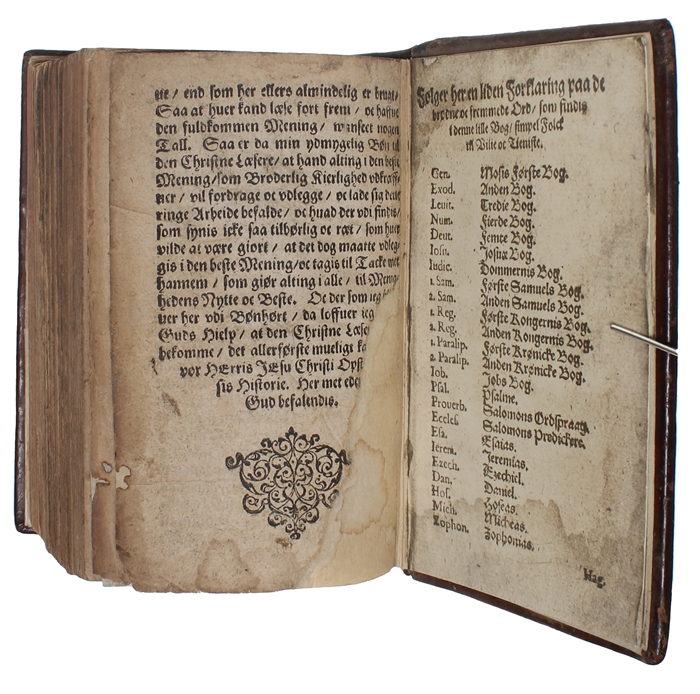 ne / end som her ellers almindelig er brugt /
Saa at huer kand læse fort frem / oc haffue
den fuldkommen Mening / uanseet nogen
Tall. Saa er da min ydmygelig Bøn til
den Christne Læsere / at hand alting i den beste
Mening / som Broderlig Kierlighed udkræff-
uer / vil fordrage oc vdlegge / oc lade sig dette
ringe Arbeide befalde / oc huad der vdi findis /
som synis icke saa tilbørlig oc ræt / som huer
vilde at være giort / at det dog maatte vdleg-
gis i den beste Mening / oc tagis til Tacke
hannem / som giør alting i alle / til Menig-
hedens Nytte oc Beste. Oc der som ieg
uer her vdi Bønhørt / da loffuer ieg
Guds Hielp / at den Christne Læse
bekomme / det allerførste mueligt
vor HErris JEsu Christi Opst
sis Historie. Her met eder
Gud befalendis.
Følger her en liden Forklaring paa de
oc fremmede Ord / som findis
i denne lille Bog / simpel Folck
til Vilie oc Tieniste.
Gen. Mosis Første Bog.
Exod. Anden Bog.
Leuit. Tredie Bog.
Num. Fierde Bog.
Deut. Femte Bog.
Iosu. Josuæ Bog.
Iudic. Dommernis Bog.
1. Sam. Første Samuels Bog.
2. Sam. Anden Samuels Bog.
1. Reg. Første Kongernis Bog.
2. Reg. Anden Kongernis Bog.
1. Paralip. Første Krønicke Bog.
2. Paralip. Anden Krønicke Bog.
Iob. Jobs Bog.
Psal. Psalme.
Prouerb. Salomons Ordspraag.
Eccles. Salomons Predickere.
Esa. Esaias.
Ierem. Jeremias.
Ezech. Ezechiel.
Dan. Daniel.
Hos. Hoseas.
Mich. Micheas.
Zophon. Zophonias.
Hag.